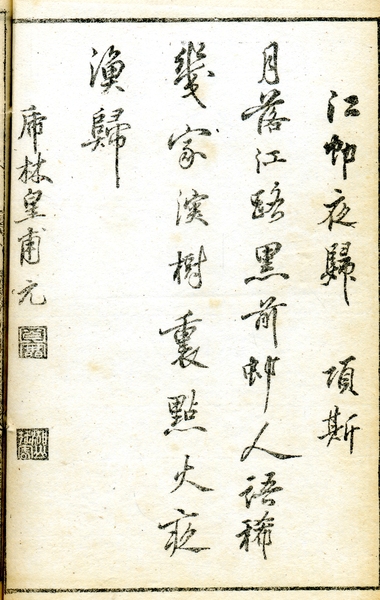 江邨夜歸　項斯
月落江路黑前邨人語稀
幾家深樹裏點火夜
漁歸
虎林皇甫元